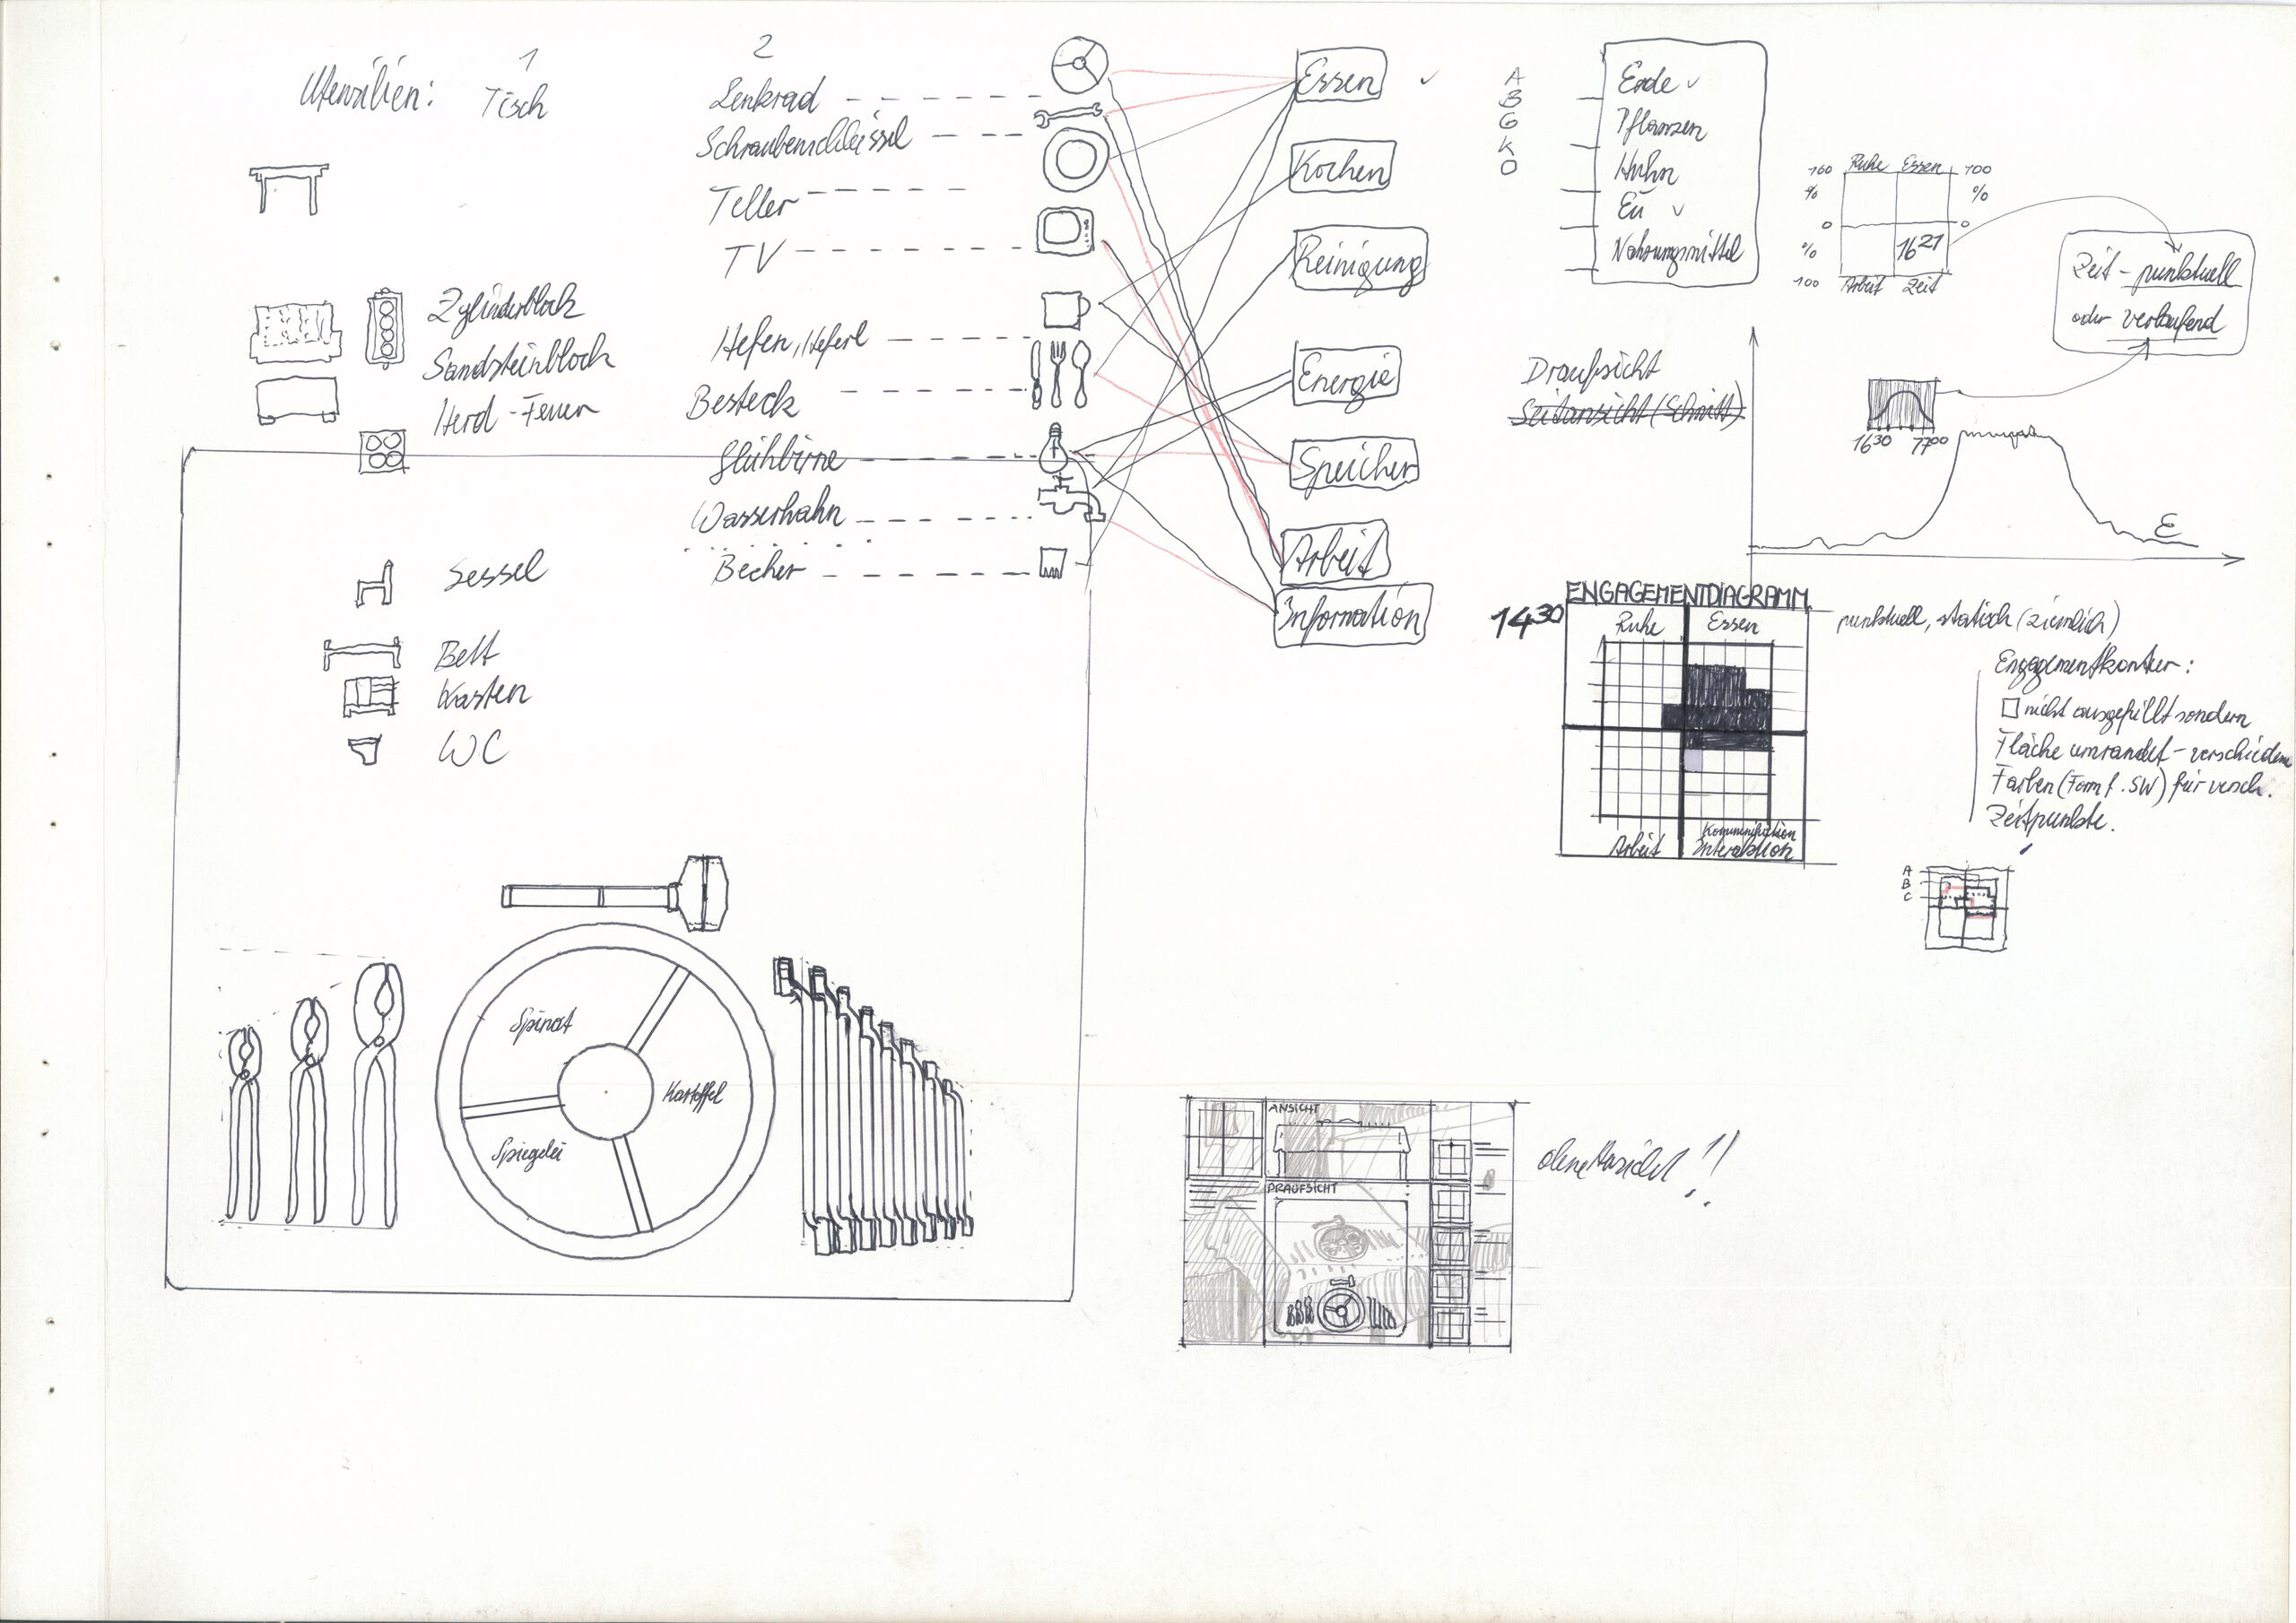 Utensilien:
1
Tisch
Zylinderblock
Sandsteinblock
Herd - Feuer
Sessel
Bett
Kasten
WC
2
Lenkrad
Schraubenschlüssel
Teller
TV
Hefen, Heferl
Besteck
Glühbirne
Wasserhahn
Becher
Essen ✓
Kochen
Reinigung
Energie
Speicher
Arbeit
Information
A
B
G
K
O
Erde ✓
Pflanzen
Huhn
Ei ✓
Nahrungsmittel
Ruhe Essen
100 % 0 % 100
100 % 0
16 21
Arbeit Zeit
Zeit - punktuell
oder verlaufend
Draufsicht
Seitansicht (Schnitt)
16 30 17 00
E
ENGAGEMENTDIAGRAMM
14 30
Ruhe Essen
Arbeit
Kommunikation
Interaktion
punktuell, statisch (ziemlich)
Engagementkontur:
nicht ausgefüllt sondern
Fläche umrandet - verschiedene
Farben (Form f. SW) für versch.
Zeitpunkte.
A
B
C
Spinat
Kartoffel
Spiegelei
ANSICHT
DRAUFSICHT
ohne Ansicht!!